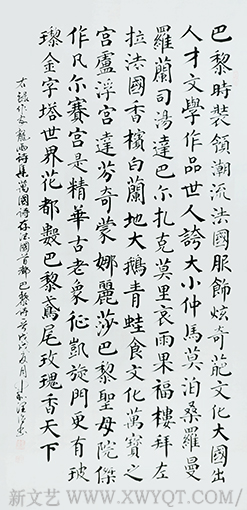 巴黎時裝領潮流法國服飾炫奇葩文化大國出
人才文學作品世人誇大小仲馬莫泊桑羅曼
羅蘭司湯達巴尔扎克莫里哀雨果福樓拜左
拉法國香檳白蘭地大鵝青蛙食文化萬寶之
宫盧浮宫達芬奇蒙娜麗莎巴黎聖母院傑
作凡尔賽宫是精華古老象征凱旋門更有玻
瓈金字塔世界花都數巴黎鳶尾玫瑰香天下
右錄作家龍雨詩集萬國詩存法國首都巴黎詩
新文艺 WWW.XWYQT.COM